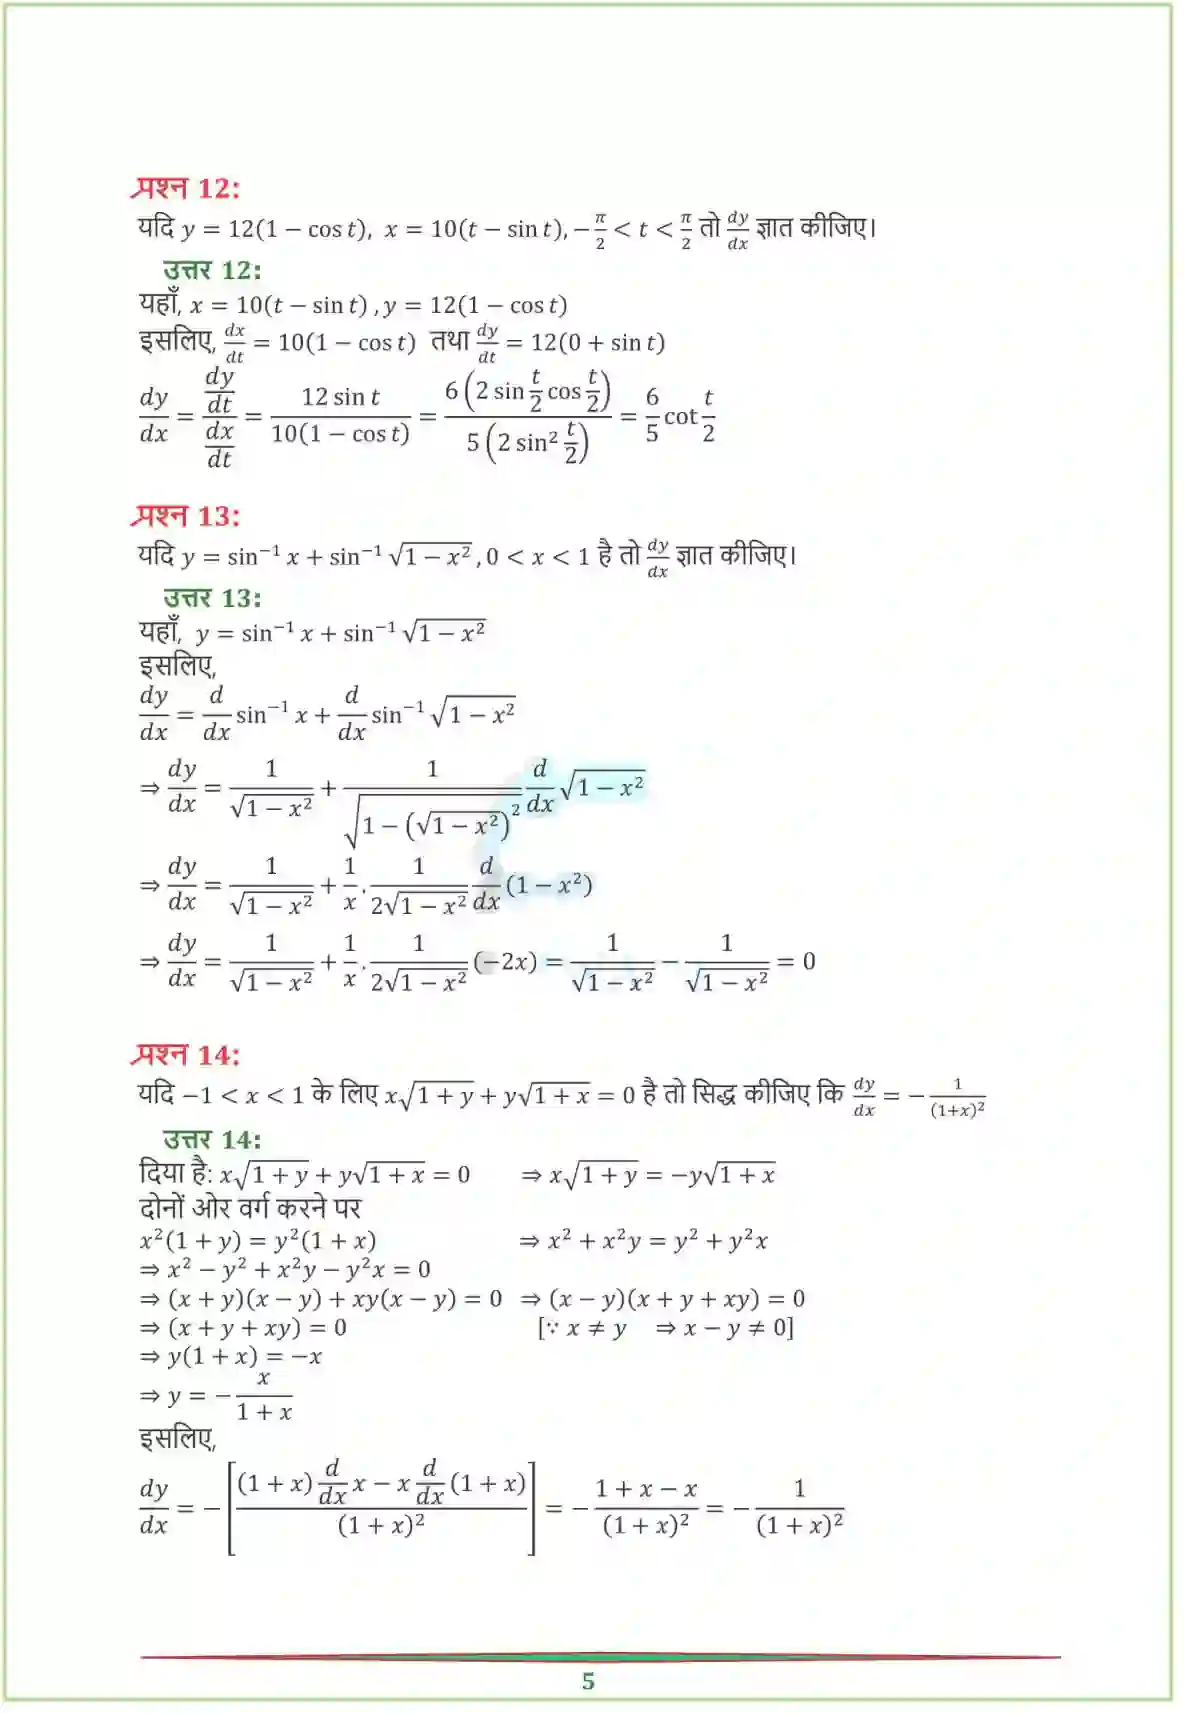 प्रश्न 12:
यदि y = 12(1 − cos t), x = 10(t − sin t), −π/2 < t < π/2 तो dy/dx ज्ञात कीजिए।
उत्तर 12:
यहाँ, x = 10(t − sin t) , y = 12(1 − cos t)
इसलिए, dx/dt = 10(1 − cos t) तथा dy/dt = 12(0 + sin t)
dy/dx = (dy/dt)/(dx/dt) = 12 sin t/10(1 − cos t) = 6(2 sin t/2 cos t/2)/5(2 sin² t/2) = 6/5 cot t/2
प्रश्न 13:
यदि y = sin⁻¹ x + sin⁻¹ √(1 − x²) , 0 < x < 1 है तो dy/dx ज्ञात कीजिए।
उत्तर 13:
यहाँ, y = sin⁻¹ x + sin⁻¹ √(1 − x²)
इसलिए,
dy/dx = d/dx sin⁻¹ x + d/dx sin⁻¹ √(1 − x²)
⇒ dy/dx = 1/√(1 − x²) + 1/√(1 − (√(1 − x²))²) d/dx √(1 − x²)
⇒ dy/dx = 1/√(1 − x²) + 1/x . 1/2√(1 − x²) d/dx (1 − x²)
⇒ dy/dx = 1/√(1 − x²) + 1/x . 1/2√(1 − x²) (−2x) = 1/√(1 − x²) − 1/√(1 − x²) = 0
प्रश्न 14:
यदि −1 < x < 1 के लिए x√(1 + y) + y√(1 + x) = 0 है तो सिद्ध कीजिए कि dy/dx = − 1/(1+x)²
उत्तर 14:
दिया है: x√(1 + y) + y√(1 + x) = 0 ⇒ x√(1 + y) = −y√(1 + x)
दोनों ओर वर्ग करने पर
x²(1 + y) = y²(1 + x) ⇒ x² + x²y = y² + y²x
⇒ x² − y² + x²y − y²x = 0
⇒ (x + y)(x − y) + xy(x − y) = 0 ⇒ (x − y)(x + y + xy) = 0
⇒ (x + y + xy) = 0 [∵ x ≠ y ⇒ x − y ≠ 0]
⇒ y(1 + x) = −x
⇒ y = − x/(1 + x)
इसलिए,
dy/dx = − [((1 + x) d/dx x − x d/dx (1 + x))/(1 + x)²] = − (1 + x − x)/(1 + x)² = − 1/(1 + x)²
5